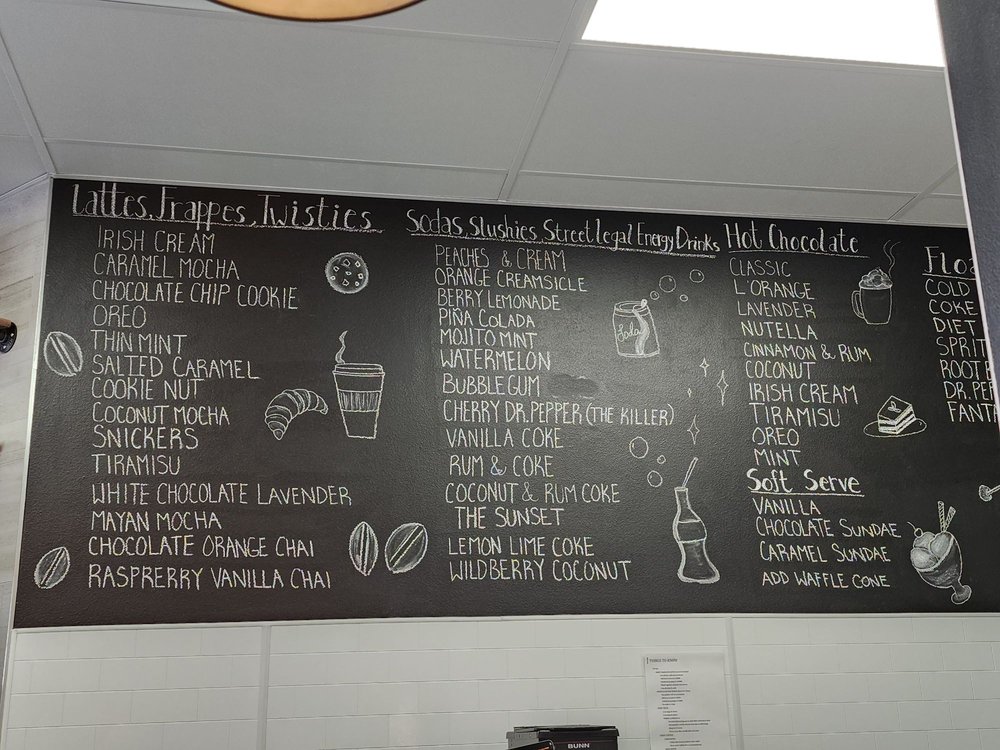 Lattes, Frappes, Twisties
IRISH CREAM
CARAMEL MOCHA
CHOCOLATE CHIP COOKIE
OREO
THIN MINT
SALTED CARAMEL
COOKIE NUT
COCONUT MOCHA
SNICKERS
TIRAMISU
WHITE CHOCOLATE LAVENDER
MAYAN MOCHA
CHOCOLATE ORANGE CHAI
RASPRERRY VANILLA CHAI
Sodas, Slushies, Street Legal Energy Drinks
PEACHES & CREAM
ORANGE CREAMSICLE
BERRY LEMONADE
PIÑA COLADA
MOJITO MINT
WATERMELON
BUBBLEGUM
CHERRY DR.PEPPER (THE KILLER)
VANILLA COKE
RUM & COKE
COCONUT & RUM COKE
THE SUNSET
LEMON LIME COKE
WILDBERRY COCONUT
Soda
Hot Chocolate
CLASSIC
L'ORANGE
LAVENDER
NUTELLA
CINNAMON & RUM
COCONUT
IRISH CREAM
TIRAMISU
OREO
MINT
Soft Serve
VANILLA
CHOCOLATE SUNDAE
CARAMEL SUNDAE
ADD WAFFLE CONE
Floa
COLD
COKE
DIET
SPRIT
ROOT B
DR. PEP
FANTA
THINGS TO KNOW
BUNN